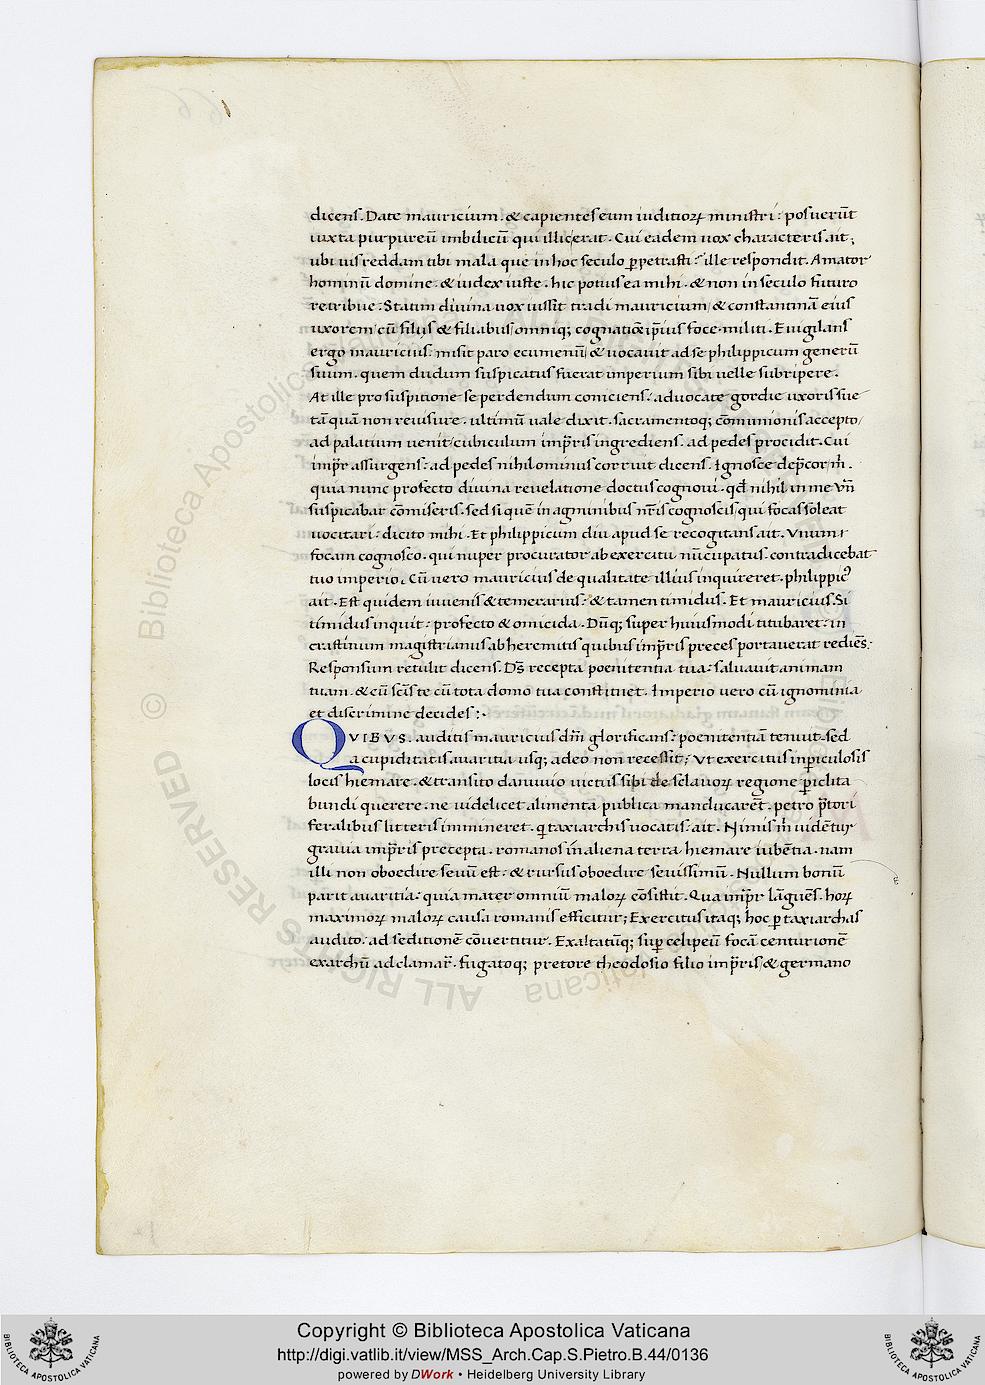 dicens. Date mauricium. & capientes eum iuditioꝝ ministri: posuerūt
iuxta purpureū imbilicū qui illic erat. Cui eadem uox characteris ait;
ubi uis reddam tibi mala que in hoc seculo ꝑpetrasti: ille respondit. Amator
hominū domine. & iudex iuste. hic potius ea mihi. & non in seculo futuro
retribue: Statim diuina uox iussit tradi mauricium / & constantinā eius
uxorem / cū filiis & filiabus / omniq; cognatiōe ip̄ius foce militi. Euigilans
ergo mauricius: misit paro ecumenū / & uocauit ad se philippicum generū
suum. quem dudum suspicatus fuerat imperium sibi uelle subripere.
At ille pro suspitione se perdendum coniciens: aduocate gordie uxoris sue
tā quā non reuisure. ultimū uale dixit. sacramentoq; cōmunionis accepto /
ad palatium uenit / cubiculum imp̄ris ingrediens. ad pedes procidit. Cui
imp̄r assurgens: ad pedes nihilominus corruit dicens. Ignosce dep̄cor m̄.
quia nunc profecto diuina reuelatione doctus cognoui. qđ nihil in me vn̄
suspicabar cōmiseris. sed si quē in agminibus nr̄is cognoscis / qui focas soleat
uocitari: dicito mihi. Et philippicum diu apud se recogitans ait. Vnum:
focam cognosco. qui nuper procurator ab exercitu nūcupatus. contradicebat
tuo imperio. Cū uero mauricius de qualitate illius inquireret. philippicꝰ
ait. Est quidem iuuenis & temerarius: & tamen timidus. Et mauricius. Si
timidus inquit: profecto & omicida. Dūq; super huiusmodi titubaret: in
crastinum magistrianus ab heremitis quibus imp̄ris preces portauerat rediēs:
Responsum retulit dicens. Dn̄s recepta poenitentia tua: saluauit animam
tuam. & cū scīs te cū tota domo tua constituet. Imperio uero cū ignominia
et discrimine decides:.
QVIBVS. auditis mauricius dm̄ glorificans: poenitentiā tenuit. sed
a cupiditatis auaritia usq; adeo non recessit; Ut exercitus in ꝑiculosis
locis hiemare. & transito danuuio uictus sibi de sclauoꝝ regione ꝑiclita
bundi querere. ne uidelicet alimenta publica manducarēt. petro p̄tori
feralibus litteris immineret. q taxiarchis uocatis: ait. Nimis m̄ uidētur
grauia imp̄ris precepta. romanos in aliena terra hiemare iubētia. nam
illi non oboedire seuū est. & rursus oboedire seuissimū. Nullum bonū
parit auaritia: quia mater omniū maloꝝ cōsistit. Qua imp̄r lāguēs. hoꝝ
maximoꝝ maloꝝ causa romanis efficitur; Exercitus itaq; hoc ꝑ taxiarchas
audito. ad seditionē cōuertitur. Exaltatūq; suꝑ celipeū focā centurionē
exarchū adclamar̄. fugatoq; pretore theodosio filio imp̄ris & germano
Copyright © Biblioteca Apostolica Vaticana
http://digi.vatlib.it/view/MSS_Arch.Cap.S.Pietro.B.44/0136
powered by DWork • Heidelberg University Library
BIBLIOTECA APOSTOLICA VATICANA
BIBLIOTECA APOSTOLICA VATICANA
© Biblioteca Apostolica Vaticana
ALL RIGHTS RESERVED